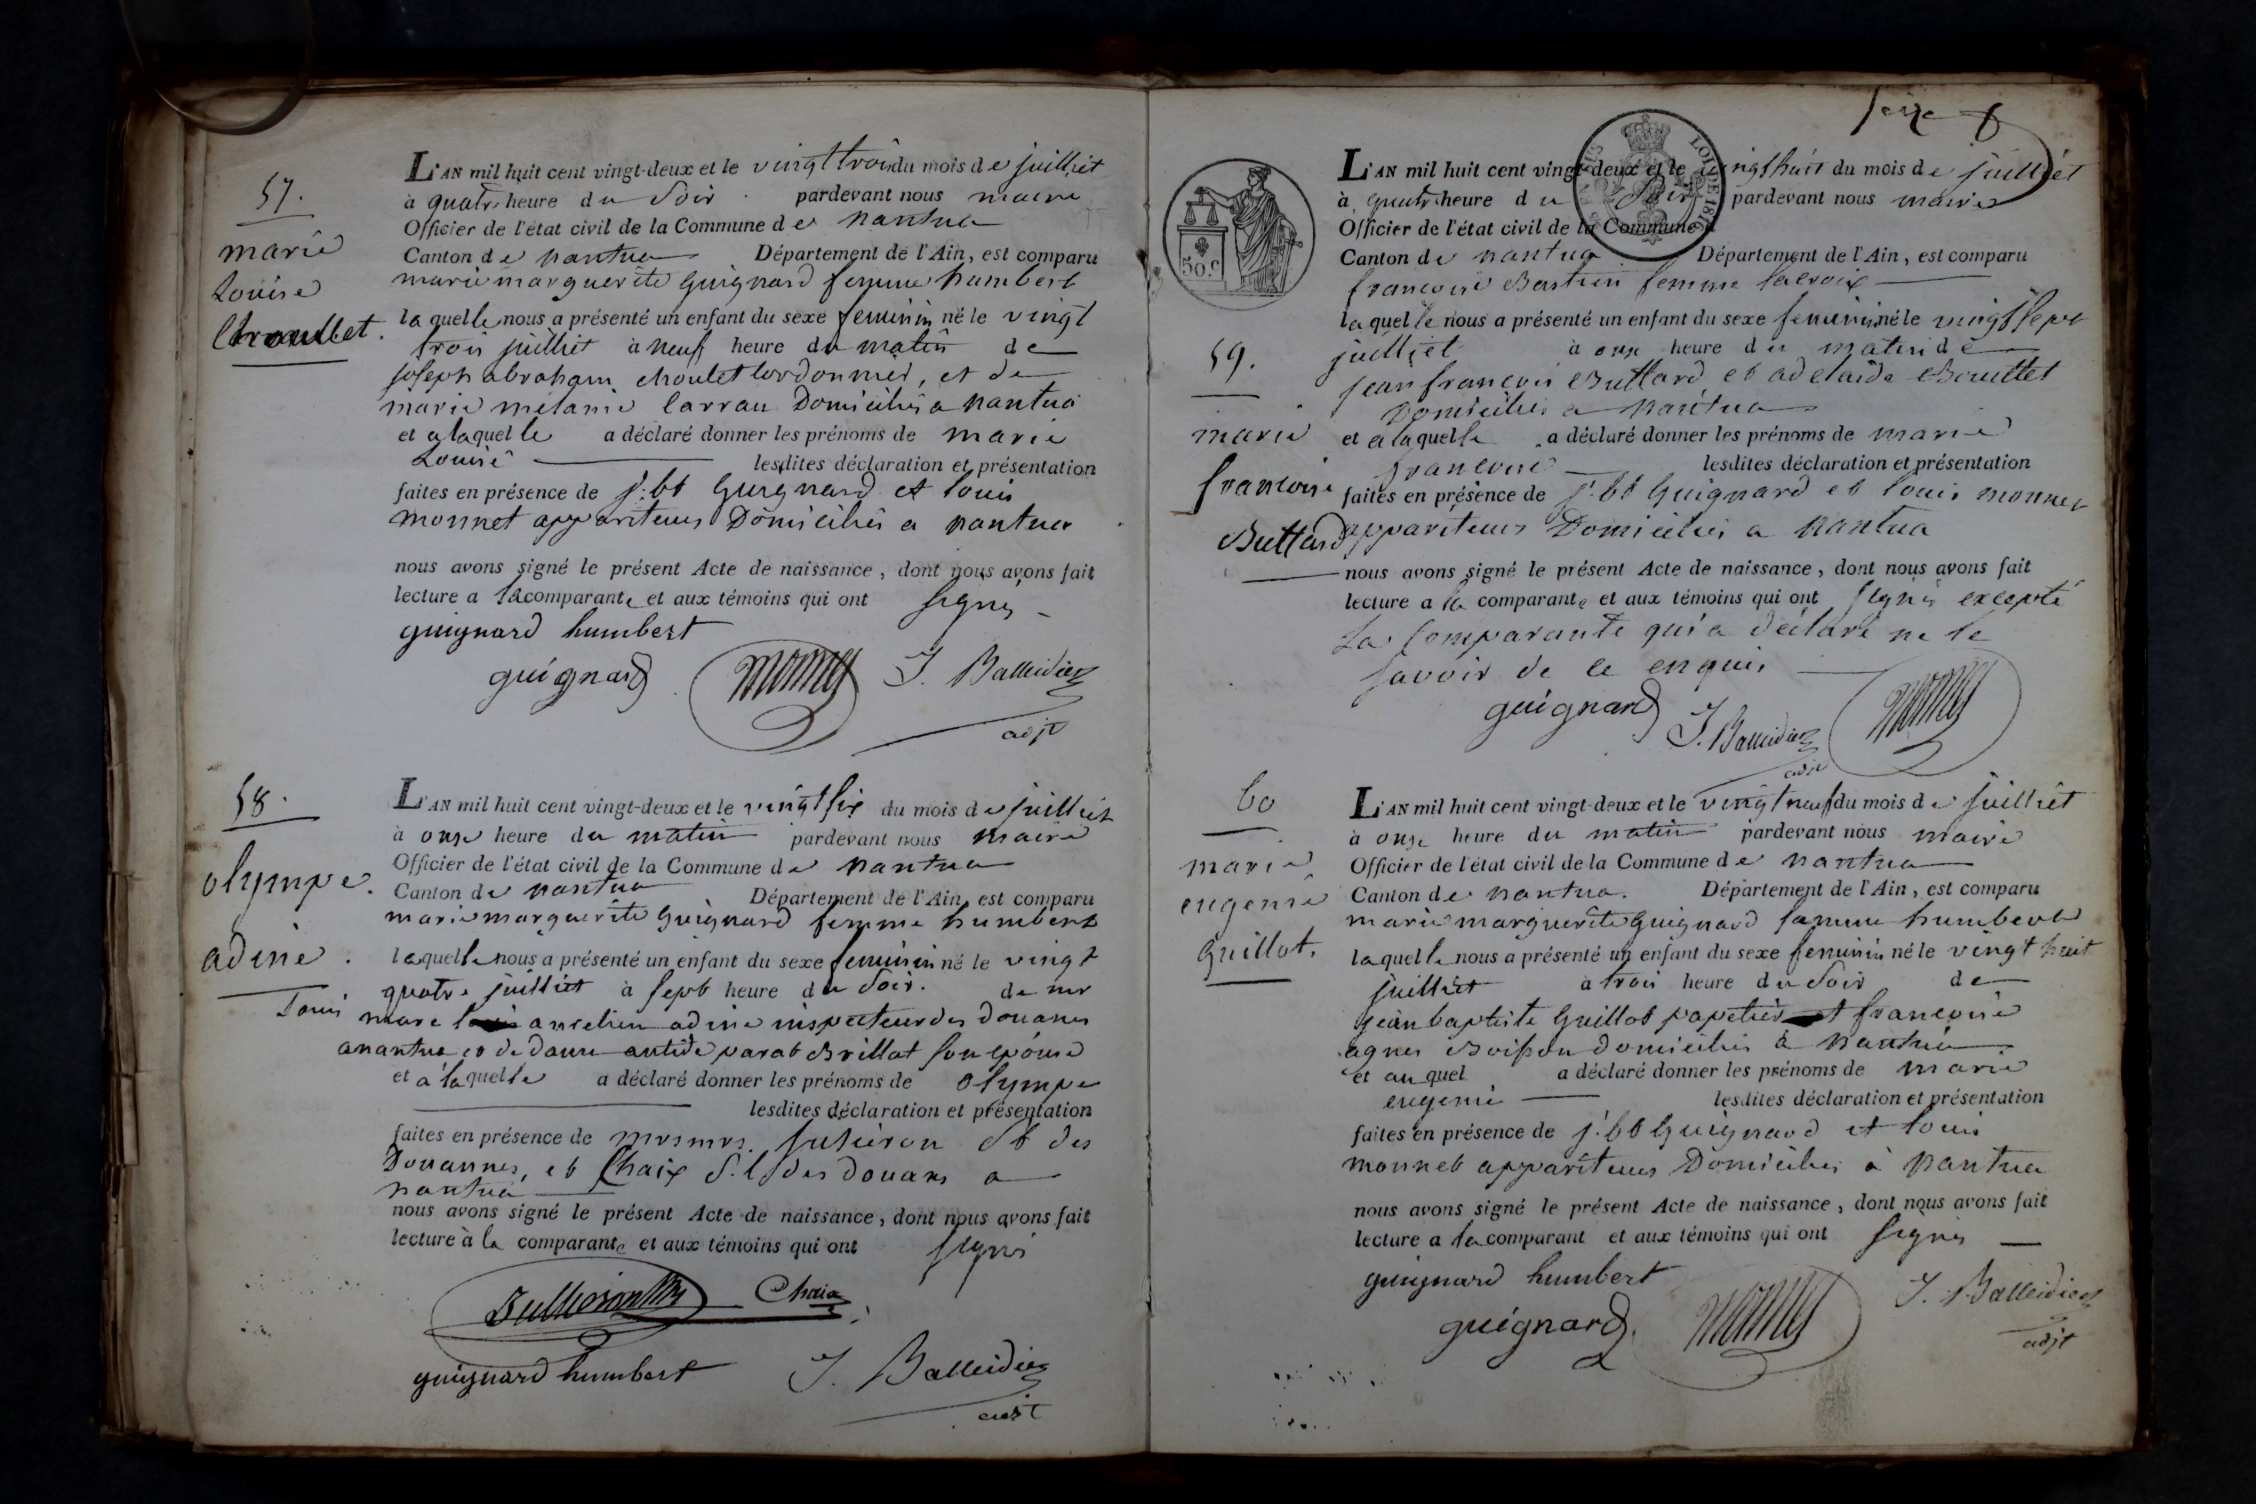 57.
marie
Louise
Chroullet.
L'AN mil huit cent vingt-deux et le vingt trois du mois de juilliet
à quatre heure du soir pardevant nous maire
Officier de l'état civil de la Commune de nantua
Canton de nantua Département de l'Ain, est comparu
marie marguerite guignard femme humbert
laquelle nous a présenté un enfant du sexe feminin né le vingt
trois juilliet à neuf heure du matin de
joseph abraham choulet cordonnier, et de
marie melanie carrau Domiciliés a nantua
et a laquelle a déclaré donner les prénoms de marie
Louise lesdites déclaration et présentation
faites en présence de j. bt Guignard et louis
monnet appariteurs Domiciliés a nantua
nous avons signé le présent Acte de naissance, dont nous avons fait
lecture a la comparante et aux témoins qui ont signés
guignard humbert
guignard monnet J. Balleidier
adjt
58.
olympe
adine
L'AN mil huit cent vingt-deux et le vingt six du mois de juilliet
à onze heure du matin pardevant nous maire
Officier de l'état civil de la Commune de nantua
Canton de nantua Département de l'Ain, est comparu
marie marguerite guignard femme humbert
laquelle nous a présenté un enfant du sexe feminin né le vingt
quatre juilliet à sept heure du soir. de mr
Louis
marc aurelien adine inspecteur des douanes
a nantua et de dame antide Brillat son épouse
et a laquelle a déclaré donner les prénoms de olympe
lesdites déclaration et présentation
faites en présence de des
Douannes, et Chaix des douanes a
nantua
nous avons signé le présent Acte de naissance, dont nous avons fait
lecture à la comparante et aux témoins qui ont signés
Chaix
guignard humbert J. Balleidier
adjt
seize
50.C
LOI DE 1816
L'AN mil huit cent vingt-deux et le vingt huit du mois de juilliet
à quatre heure du soir pardevant nous maire
Officier de l'état civil de la Commune d
Canton de nantua Département de l'Ain, est comparu
francoise Bastien femme lacroix
laquelle nous a présenté un enfant du sexe feminin né le vingt sept
59.
marie
francoise
Buttard
juilliet à onze heure du matin de
jean francois Buttard et adelaide Bouttet
Domiciliés a nantua
et a laquelle a déclaré donner les prénoms de marie
francoise lesdites déclaration et présentation
faites en présence de j. bt Guignard et louis monnet
appariteurs Domiciliés a nantua
nous avons signé le présent Acte de naissance, dont nous avons fait
lecture a la comparante et aux témoins qui ont signés excepté
La Comparante qui a déclaré ne le
savoir de ce enquis
guignard J. Balleidier monnet
adjt
60
marie
eugenie
guillot.
L'AN mil huit cent vingt-deux et le vingt neuf du mois de juilliet
à onze heure du matin pardevant nous maire
Officier de l'état civil de la Commune de nantua
Canton de nantua. Département de l'Ain, est comparu
marie marguerite guignard femme humbert
laquelle nous a présenté un enfant du sexe feminin né le vingt huit
juilliet à trois heure du soir de
jean baptiste guillot papetier et francoise
agnes Boisson domiciliés à nantua
et au quel a déclaré donner les prénoms de marie
eugenie lesdites déclaration et présentation
faites en présence de j. bt Guignard et louis
monnet appariteurs Domiciliés à nantua
nous avons signé le présent Acte de naissance, dont nous avons fait
lecture a la comparant et aux témoins qui ont signés
guignard humbert
guignard monnet J. Balleidier
adjt